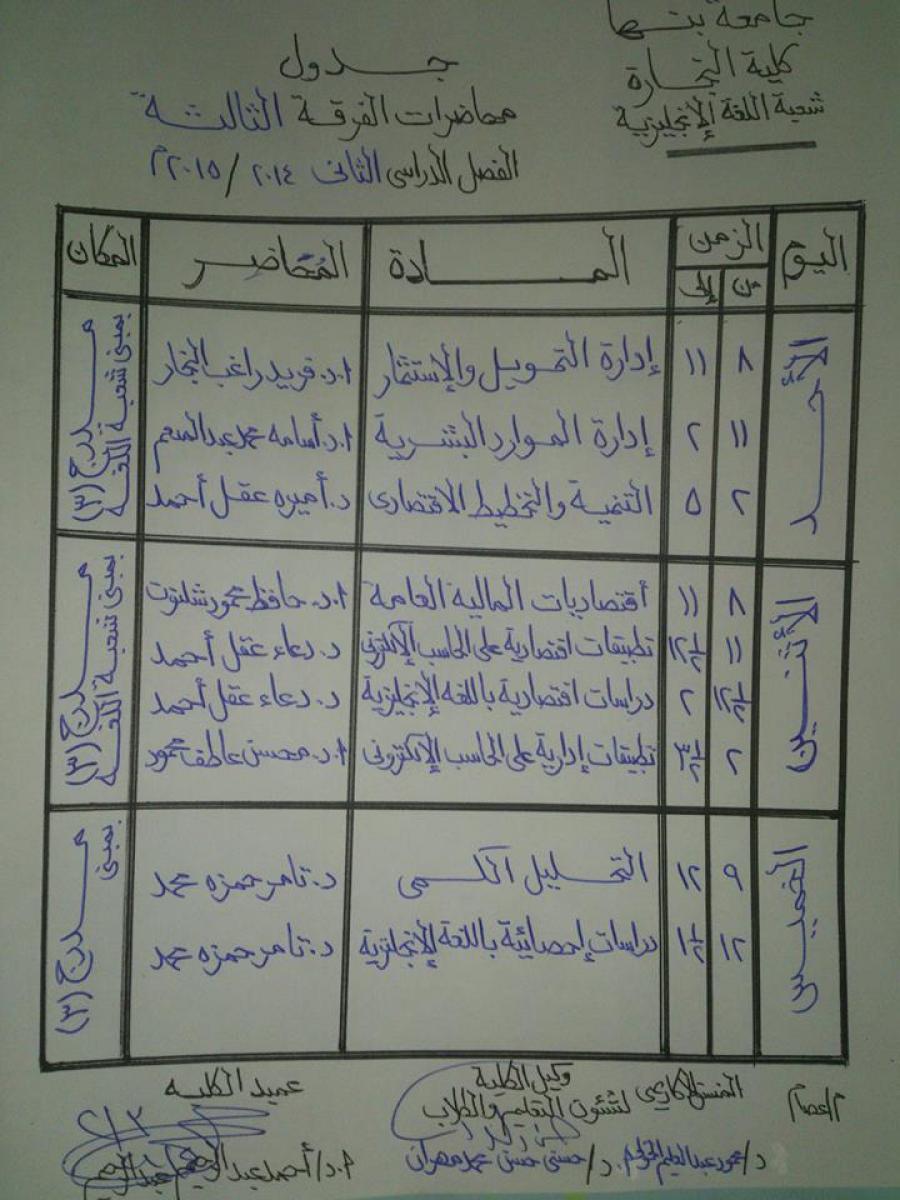 جامعة بنها
كلية التجارة
شعبة اللغة الإنجليزية
جدول
محاضرات الفرقة الثالثة
الفصل الدراسى الثانى ٢٠١٤ / ٢٠١٥م
اليوم الزمن المادة المُحاضر المكان
من إلى
الأحد
٨ ١١ إدارة التمويل والإستثمار ا.د. فريد راغب النجار
١١ ٢ إدارة الموارد البشرية ا.د. أسامه محمد عبد المنعم
٢ ٥ التنمية والتخطيط الاقتصادى د. أميره عقل أحمد
مدرج (٣)
بمبنى شعبة اللغة
الأثنين
٨ ١١ أقتصاديات المالية العامة ا.د. حافظ محمود شلتوت
١١ ١٢ ١/٢ تطبيقات اقتصادية على الحاسب الإلكترونى د. دعاء عقل أحمد
١٢ ١/٢ ٢ دراسات اقتصادية باللغة الإنجليزية د. دعاء عقل أحمد
٢ ٣ ١/٢ تطبيقات إدارية على الحاسب الإلكترونى ا.د. محسن عاطف محمود
مدرج (٣)
بمبنى شعبة اللغة
الخميس
٩ ١٢ التحليل الكمى د. تامر حمزه محمد
١٢ ١ ١/٢ دراسات إحصائية باللغة الإنجليزية د. تامر حمزه محمد
مدرج (٣)
بمبنى
وكيل الكلية عميد الكلية
لشئون التعليم والطلاب
د/ حسنى حسن محمد مهران ا.د/ أحمد